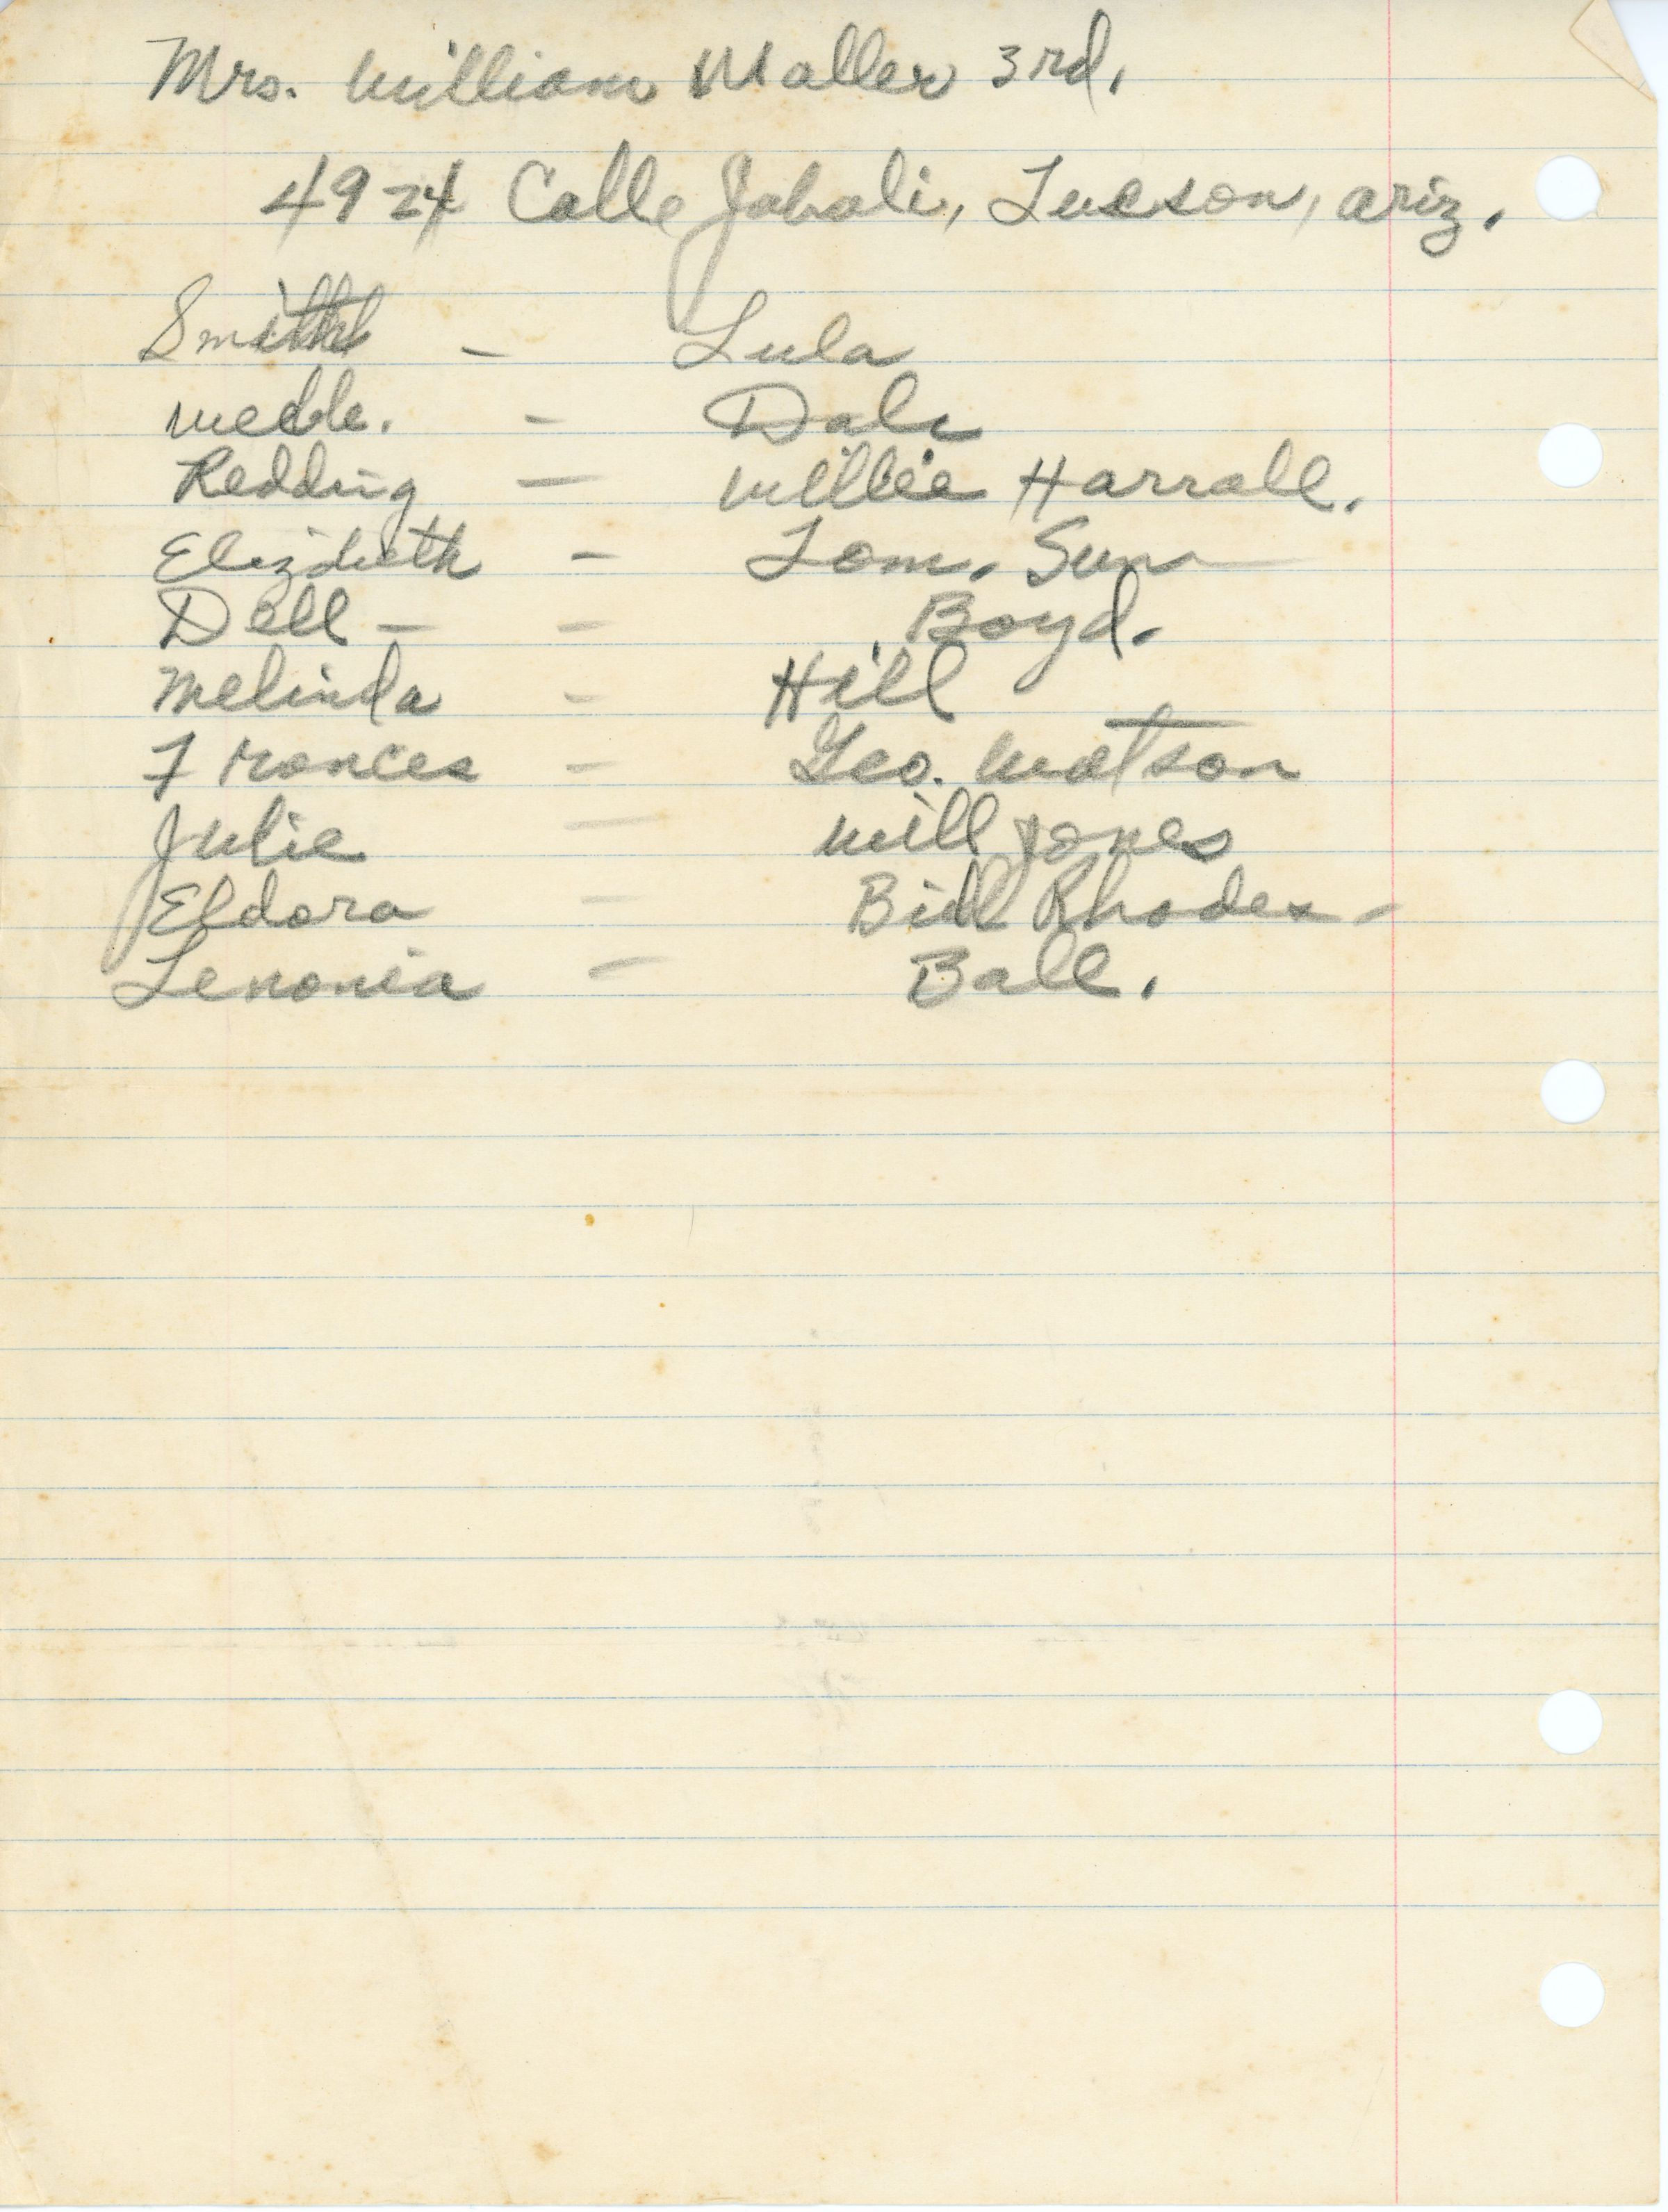 Mrs. William Waller 3rd.
4924 Calle Jabali, Tucson, Ariz.
Smith - Lula
Webb. - Dale
Redding - Willie Harrall.
Elizabeth - Tom. Sum
Dell - - Boyd.
Melinda - Hill
Frances - Geo. Watson
Julie - Will Jones
Eldora - Bill Rhodes -
Lenonia - Ball.